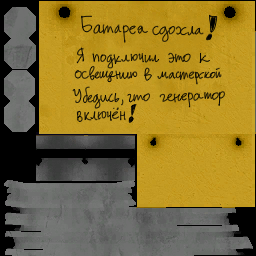 Батарея сдохла!
Я подключил это к
освещению в мастерской
Убедись, что генератор
включён!